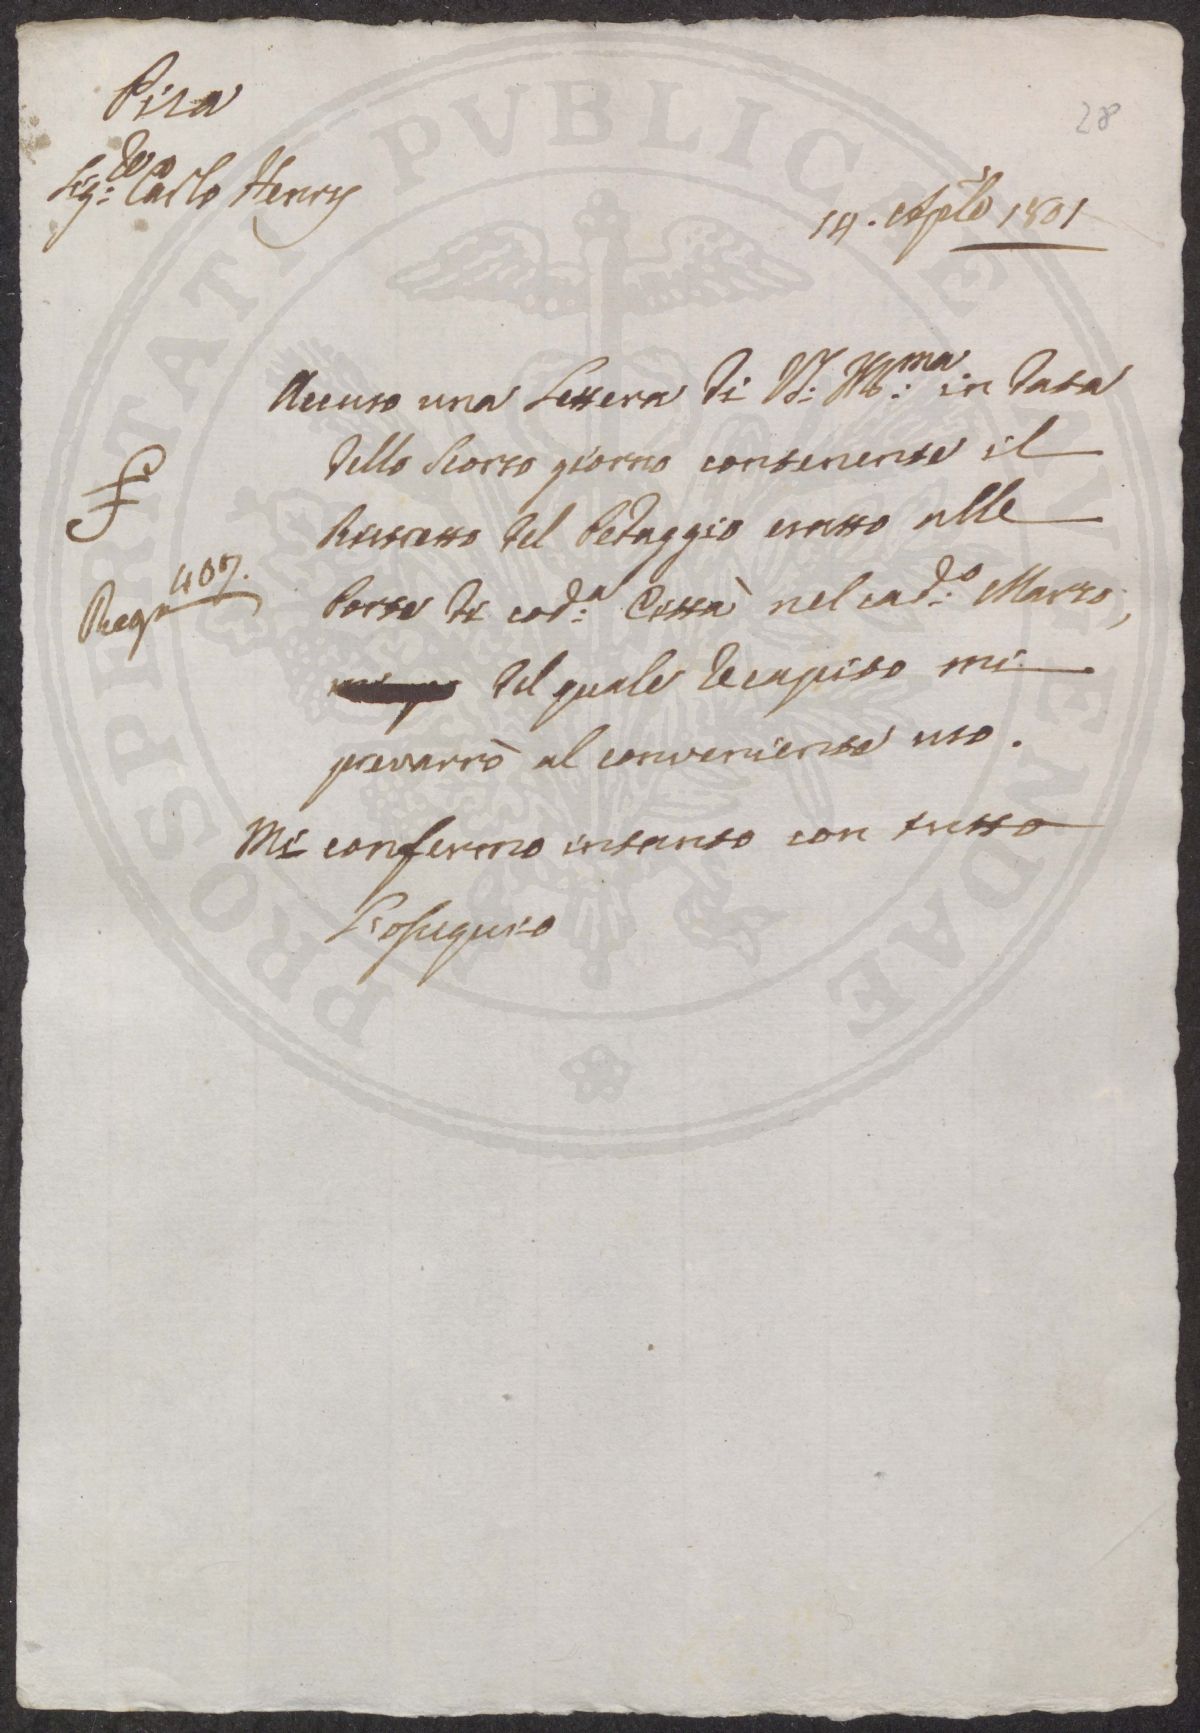 Pisa
28
Sig.re Carlo Henry
14. Aple 1801
Accuso una Lettera di V.S. Ill.ma in data
dello scorso giorno contenente il
Ristretto del Pedaggio esatto alle
Porte di cod.a Città nel cad.o Marzo,
del quale recapito mi
prevarrò al conveniente uso.
407.
Mi confermo intanto con tutto
l'ossequio
PROSPERITATI PVBLICAE AVGENDAE